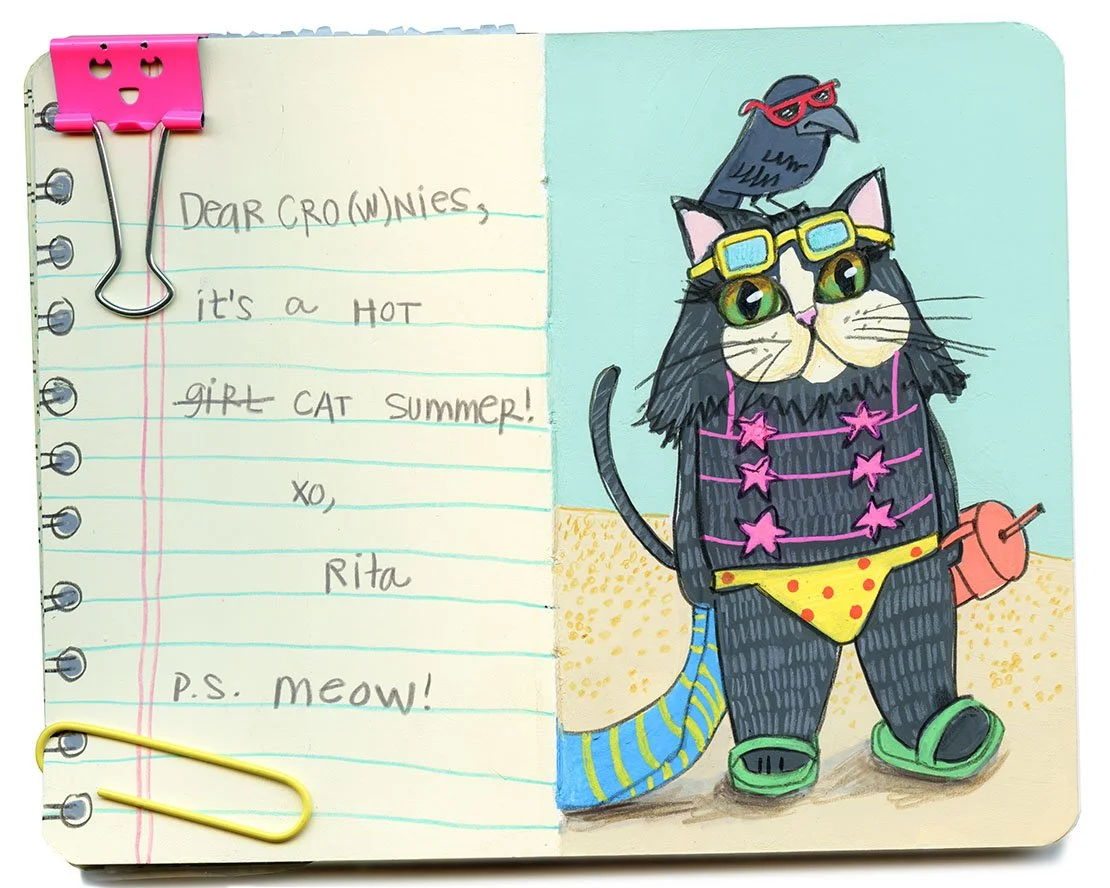 Dear CRO(W)Nies,
it's a HOT
giRL CAT Summer!
xo,
Rita
P.S. meow!